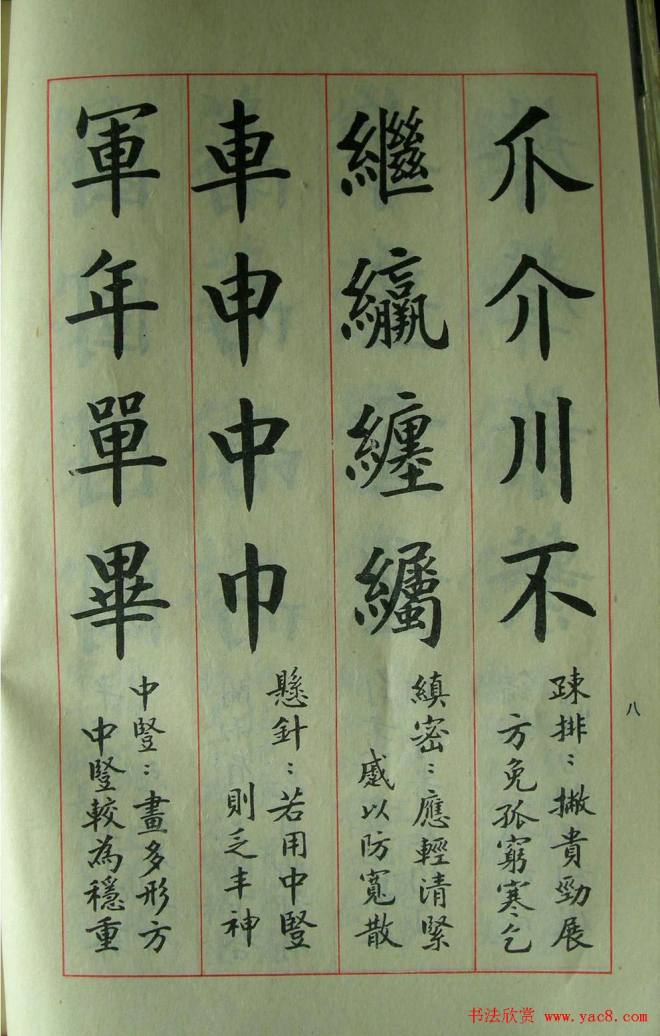 爪介川不
疎排：撇貴勁展
方免孤窮寒乞
繼纏
縝密：應輕清緊
戚以防寬散
車申中巾
懸針：若用中豎
則乏丰神
軍年單畢
中豎：畫多形方
中豎較為穩重
八
书法欣赏 www.yac8.com